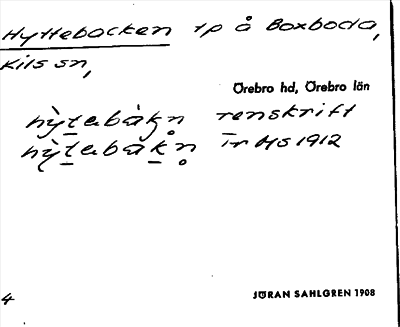 Hyttebacken tp å Boxboda,
Kils sn,
Örebro hd, Örebro län
hỳtebàkn̥ renskrift
hỳtebàkn̥ Tr MS 1912
4
JÖRAN SAHLGREN 1908